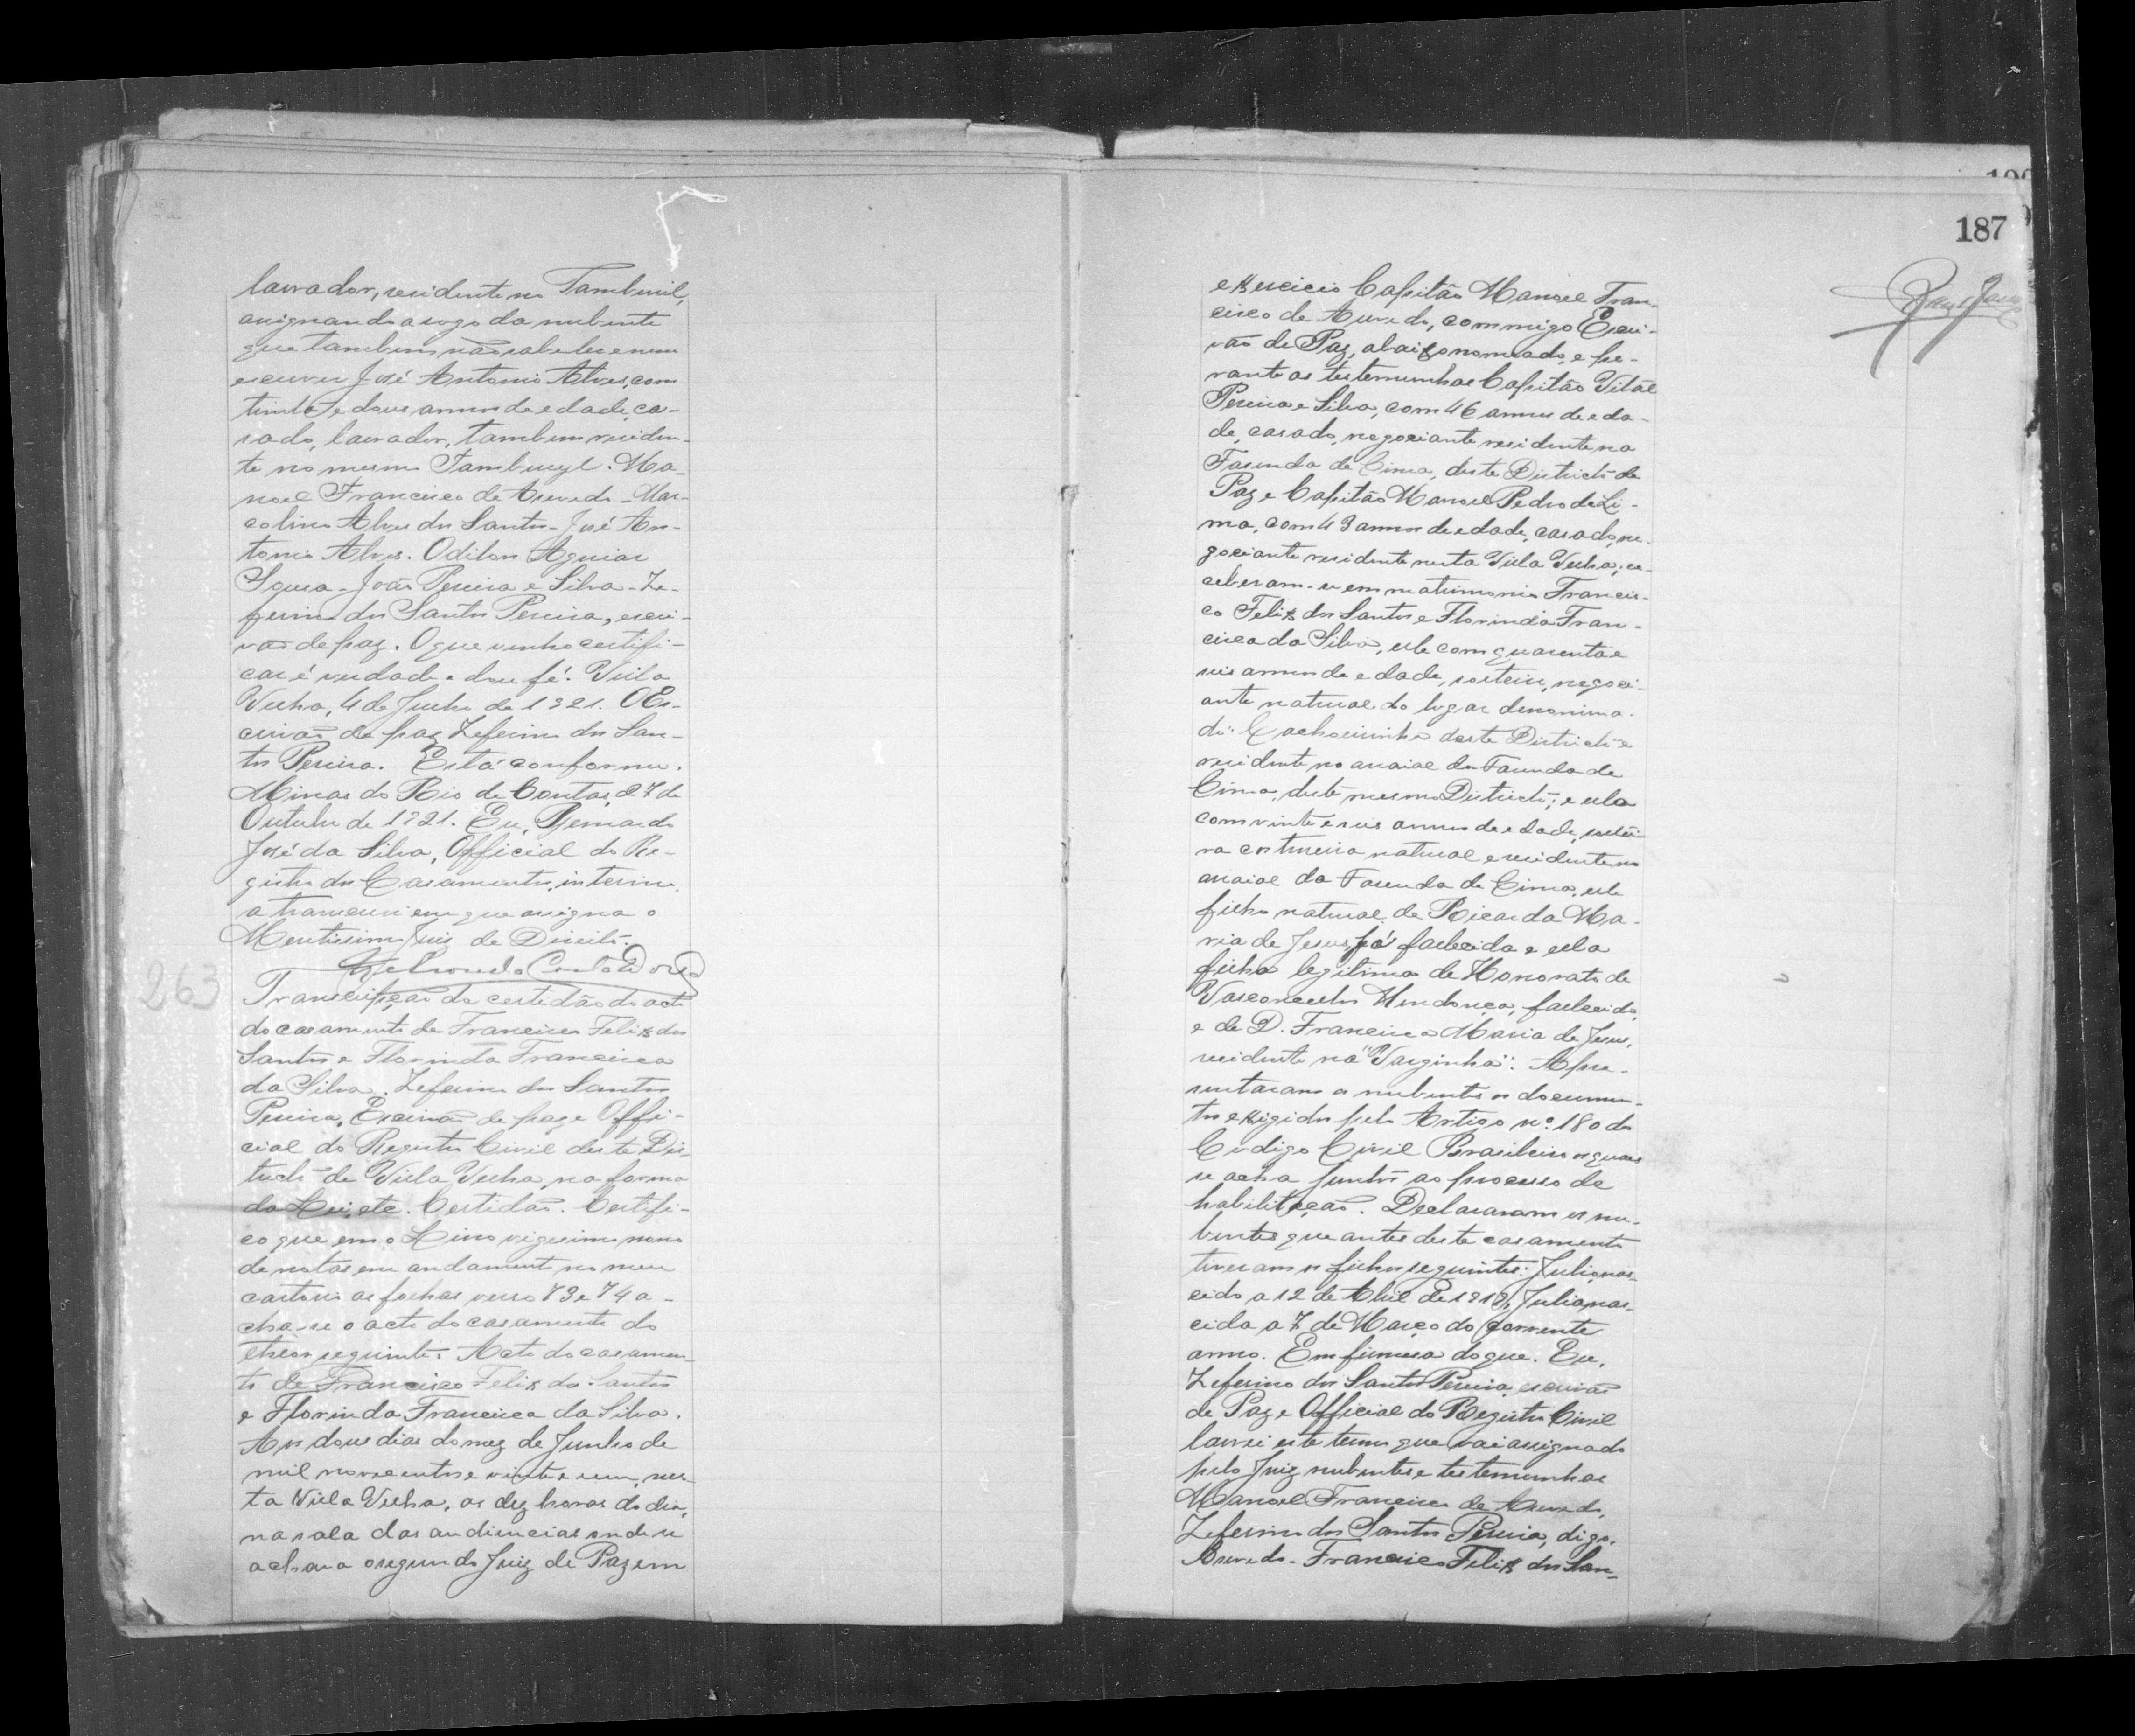 lavrador, residente no Tamburil,
assignando a rogo da nubente
que tambem não sabe ler e nem
escrever José Antonio Alves, com
trinta e dous annos de edade, ca-
sado, lavrador, tambem residen-
te no mesmo Tamburyl. Ma-
noel Francisco de Azevedo - Mar-
colino Alves dos Santos - José An-
tonio Alves. Odilon Aguiar
Sousa - João Pereira e Silva - Ze-
ferino dos Santos Pereira, escri-
vão de paz. O que venho certifi-
car é verdade e dou fé. Villa
Velha, 4 de Junho de 1921. O Es-
crivão de paz Zeferino dos San-
tos Pereira. Está conforme.
Minas do Rio de Contas, 27 de
Outubro de 1921. Eu, Bernardo
José da Silva, Official do Re-
gistro dos Casamentos, interino,
a transcrevi em que assigna o
Meritissimo Juiz de Direito.
263
Transcripção da certidão do acto
do casamento de Francisco Felix dos
Santos e Florinda Francisca
da Silva. Zeferino dos Santos
Pereira, Escrivão de paz e Offi-
cial do Registro Civil deste Dis-
tricto de Villa Velha, na forma
da Lei, etc. Certidão. Certifi-
co que em o Livro vigesimo nono
de notas em andamento no meu
cartorio as folhas verso 73 e 74 a-
cha-se o acto do casamento do
theor seguinte: Acto do casamen-
to de Francisco Felix do Santos
e Florinda Francisca da Silva.
Aos dous dias do mez de Junho de
mil novecentos e vinte e um, nes-
ta Villa Velha, as dez horas do dia,
na sala das audiencias onde se
achava o segundo Juiz de Paz em
187
exercicio Capitão Manoel Fran-
cisco de Azevedo, commigo Escri-
vão de Paz, abaixo nomeado, e pe-
rante as testemunhas Capitão Vital
Pereira e Silva, com 46 annos de eda-
de, casado, negociante residente na
Fasenda de Cima, deste Districto de
Paz e Capitão Manoel Pedro de Li-
ma, com 43 annos de edade, casado, ne-
gociante residente nesta Villa Velha; re-
ceberam-se em matrimonio Francis-
co Felix dos Santos e Florinda Fran-
cisca da Silva, elle com quarenta e
seis annos de edade, solteiro, negoci-
ante natural do lugar denomina-
do: Cachoeirinha deste Districto e
residente no arraial da Fasenda de
Cima, deste mesmo Districto; e ella
com vinte e seis annos de edade, soltei-
ra costureira natural e residente no
arraial da Fasenda de Cima, elle
filho natural de Ricarda Ma-
ria de Jesus, já fallecida e ella
filha legitima de Honorato de
Vasconcellos Mendonça, fallecido,
e de D. Francisca Maria de Jesus,
residente na "Varginha". Apre-
sentaram os nubentes os documen-
tos exigidos pelo Artigo nº 180 do
Codigo Civil Brasileiro os quaes
se acha juntos ao processo de
habilitação. Declararam os nu-
bentes que antes deste casamento
tiveram os filhos seguintes: Julio, nas-
cido a 12 de Abril de 1919, Julia, nas-
cida a 7 de Março do corrente
anno. Em firmesa do que. Eu,
Zeferino dos Santos Pereira, escrivão
de Paz e Official do Registro Civil
lavrei este termo que vai assignado
pelo Juiz nubentes e testemunhas
Manoel Francisco de Azevedo,
Zeferino dos Santos Pereira, digo,
Azevedo - Francisco Felix dos San-